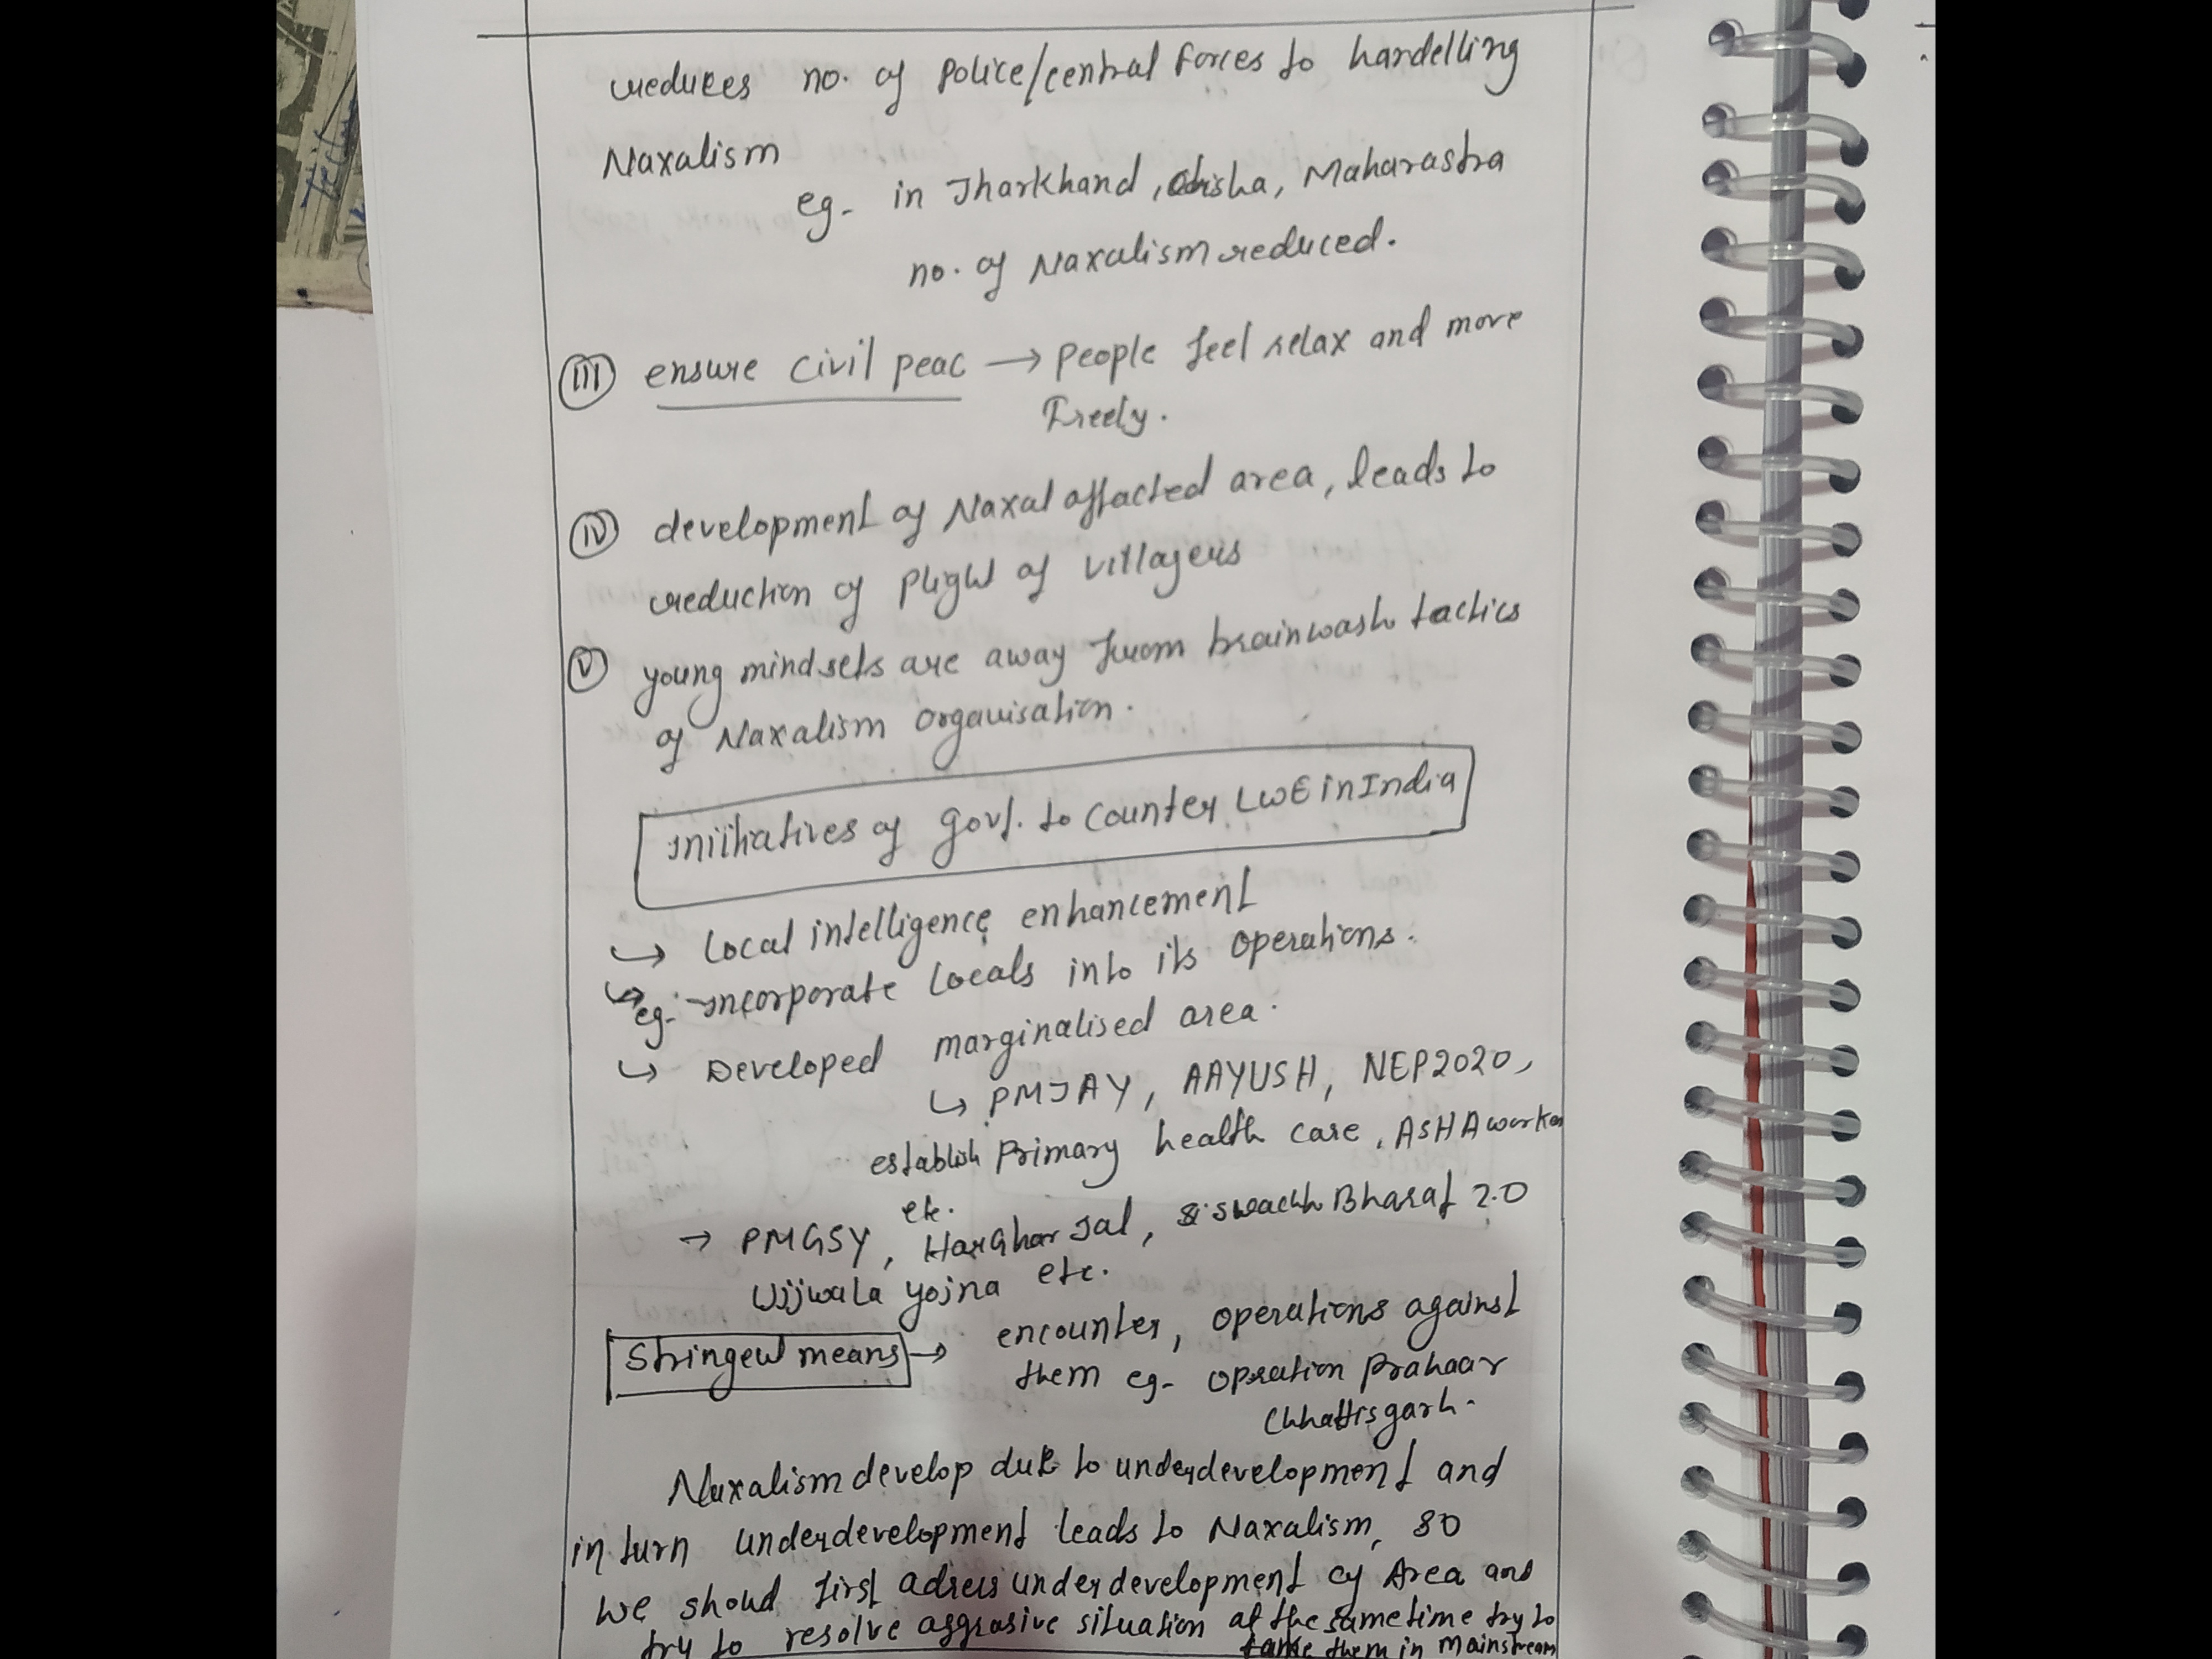 reduces no. of police/central forces to handelling
Naxalism
eg- in Jharkhand, Odisha, Maharastra
no. of Naxalism reduced.
(III) ensure civil peac → People feel relax and more
Freely.
(IV) development of Naxal affacted area, leads to
reduction of plight of villagers
(V) young mindsets are away from brainwash tactics
of Naxalism organisation.
Iniitiatives of govt. to counter LWE in India
↳ Local intelligence enhancement
↳ eg- Incorporate locals into its operations.
↳ Developed marginalised area.
↳ PMJAY, AAYUSH, NEP2020,
establish Primary health care, ASHA worker
etc.
→ PMGSY, Har Ghar Jal, Swachh Bharat 2.0
Ujjwala yojna etc.
Stringent means → encounter, operations against
them eg- opration Prahaar
Chhattisgarh.
Naxalism develop due to underdevelopment and
in turn underdevelopment leads to Naxalism, so
we shoud first adress underdevelopment of Area and
try to resolve aggrasive situation at the same time try to
them in mainstream